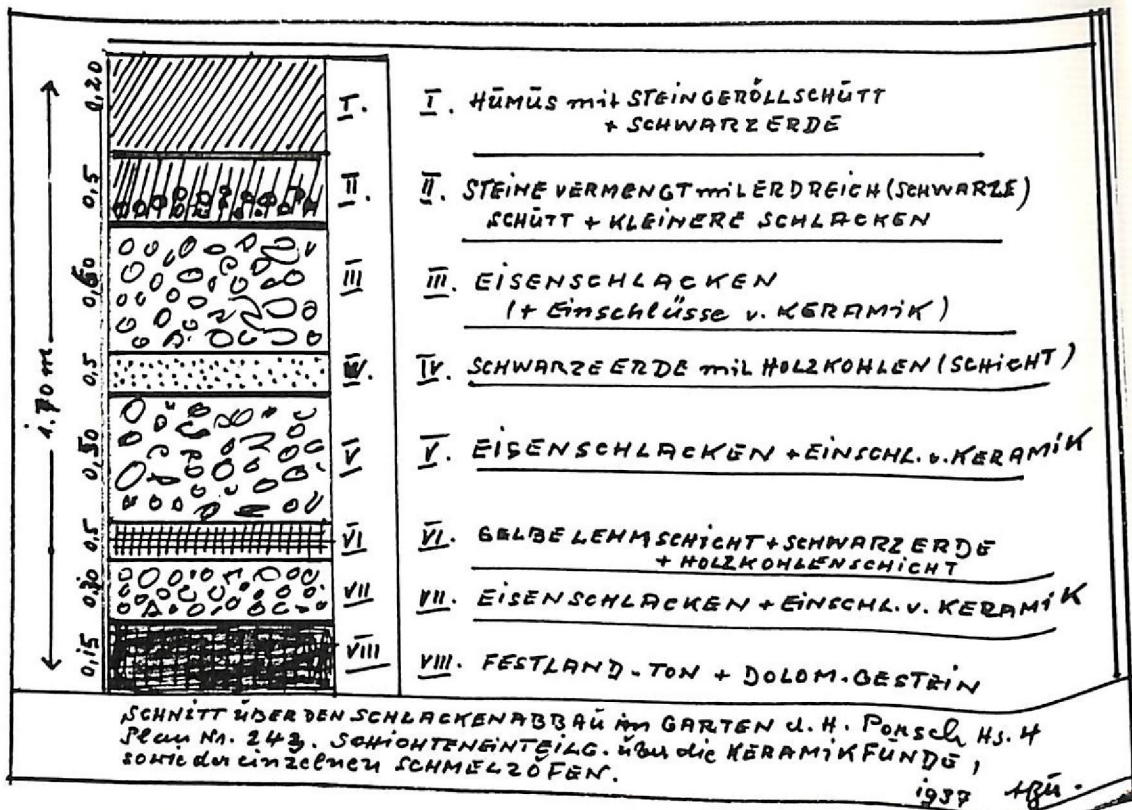 0,20
I.
I. HŪMŪS mit STEINGERÖLLSCHŪTT
+ SCHWARZERDE
0,5
II.
II. STEINE VERMENGT mit ERDREICH (SCHWARZE)
SCHŪTT + KLEINERE SCHLACKEN
0,60
III
III. EISENSCHLACKEN
(+ Einschlüsse v. KERAMIK)
1.70 m
0,5
IV.
IV. SCHWARZE ERDE mit HOLZKOHLEN (SCHICHT)
0,50
V
V. EISENSCHLACKEN + EINSCHL. v. KERAMIK
0,5
VI
VI. GELBE LEHMSCHICHT + SCHWARZERDE
+ HOLZKOHLENSCHICHT
VII
VII. EISENSCHLACKEN + EINSCHL. v. KERAMIK
0,15
VIII
VIII. FESTLAND-TON + DOLOM. GESTEIN
SCHNITT ÜBER DEN SCHLACKENABBAŪ im GARTEN d. H. Ponsch Hs. 4
Plan Nr. 243. SCHICHTENEINTEILG. über die KERAMIKFŪNDE,
sowie der einzelnen SCHMELZÖFEN.
1937